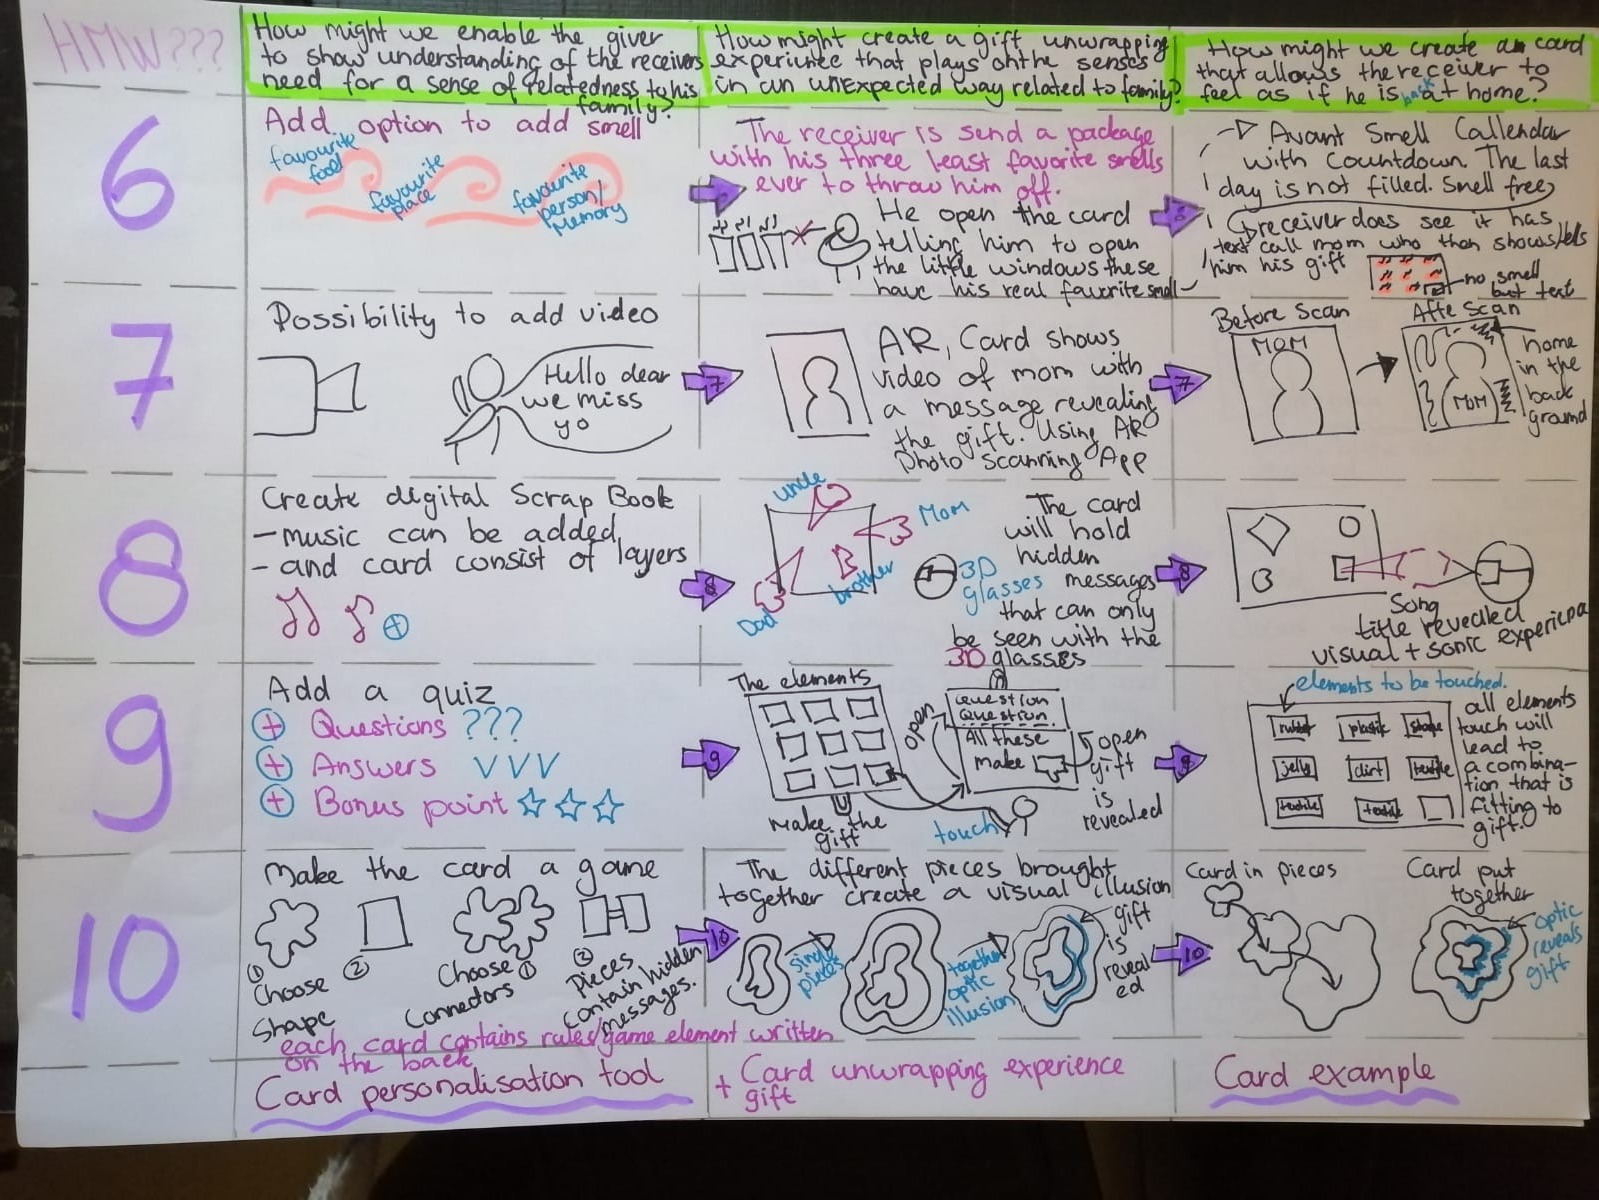 HMW???
How might we enable the giver
to show understanding of the receivers
need for a sense of relatedness to his
family?
How might create a gift unwrapping
experience that plays on the senses
in an unexpected way related to family?
How might we create a card
that allows the receiver to
feel as if he is back at home?
6
Add option to add smell
favourite
food
favourite
place
favourite
person/
memory
The receiver is send a package
with his three least favorite smells
ever to throw him off.
He open the card
telling him to open
the little windows these
have his real favorite smell
6
Avant Smell Callendar
with countdown. The last
day is not filled. Smell free
receiver does see it has
text call mom who then shows/tells
him his gift
no smell
but text
7
Possibility to add video
Hello dear
we miss
yo
7
AR, Card shows
video of mom with
a message revealing
the gift. Using AR
Photo scanning App
7
Before Scan
MOM
Afte Scan
MOM
home
in the
back
ground
8
Create digital Scrap Book
- music can be added
- and card consist of layers
8
uncle
Mom
brother
Dad
3D
glasses
The card
will hold
hidden
messages
that can only
be seen with the
3D glasses
8
Song
title revealed
visual + sonic
9
Add a quiz
+ Questions ???
+ Answers VVV
+ Bonus point
9
The elements
Make the
gift
open
question
question
All these
make
touch
open
gift
is
revealed
9
elements to be touched.
rubber plastik shape
jelly dirt textile
textile textile
all elements
touch will
lead to
a combina-
tion that is
fitting to
gift.
10
Make the card a game
① Choose
shape
②
Choose ①
Connectors
② Pieces
contain hidden
messages.
each card contains rules/game element written
on the back
10
The different pieces brought
together create a visual illusion
single
pieces
together
optic
illusion
gift
is
reveal
ed
10
Card in pieces
Card put
together
optic
reveals
gift
Card personalisation tool
+ Card unwrapping experience
gift
Card example